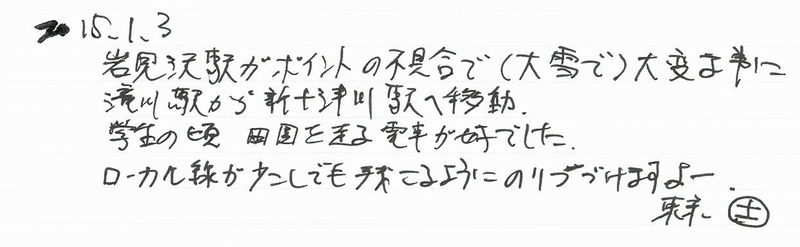 2015.1.3
岩見沢駅がポイントの不具合で(大雪で)大変な事に
滝川駅から新十津川駅へ移動.
学生の頃 田園を走る電車が好でした.
ローカル線が少しでも残こるようにのりつづけますよー.
東京. 土